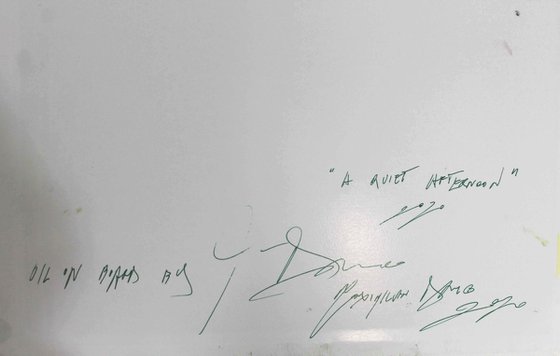 "A QUIET AFTERNOON"
2020
OIL ON BOARD BY
MAXIMILIAN DAMICO
2020